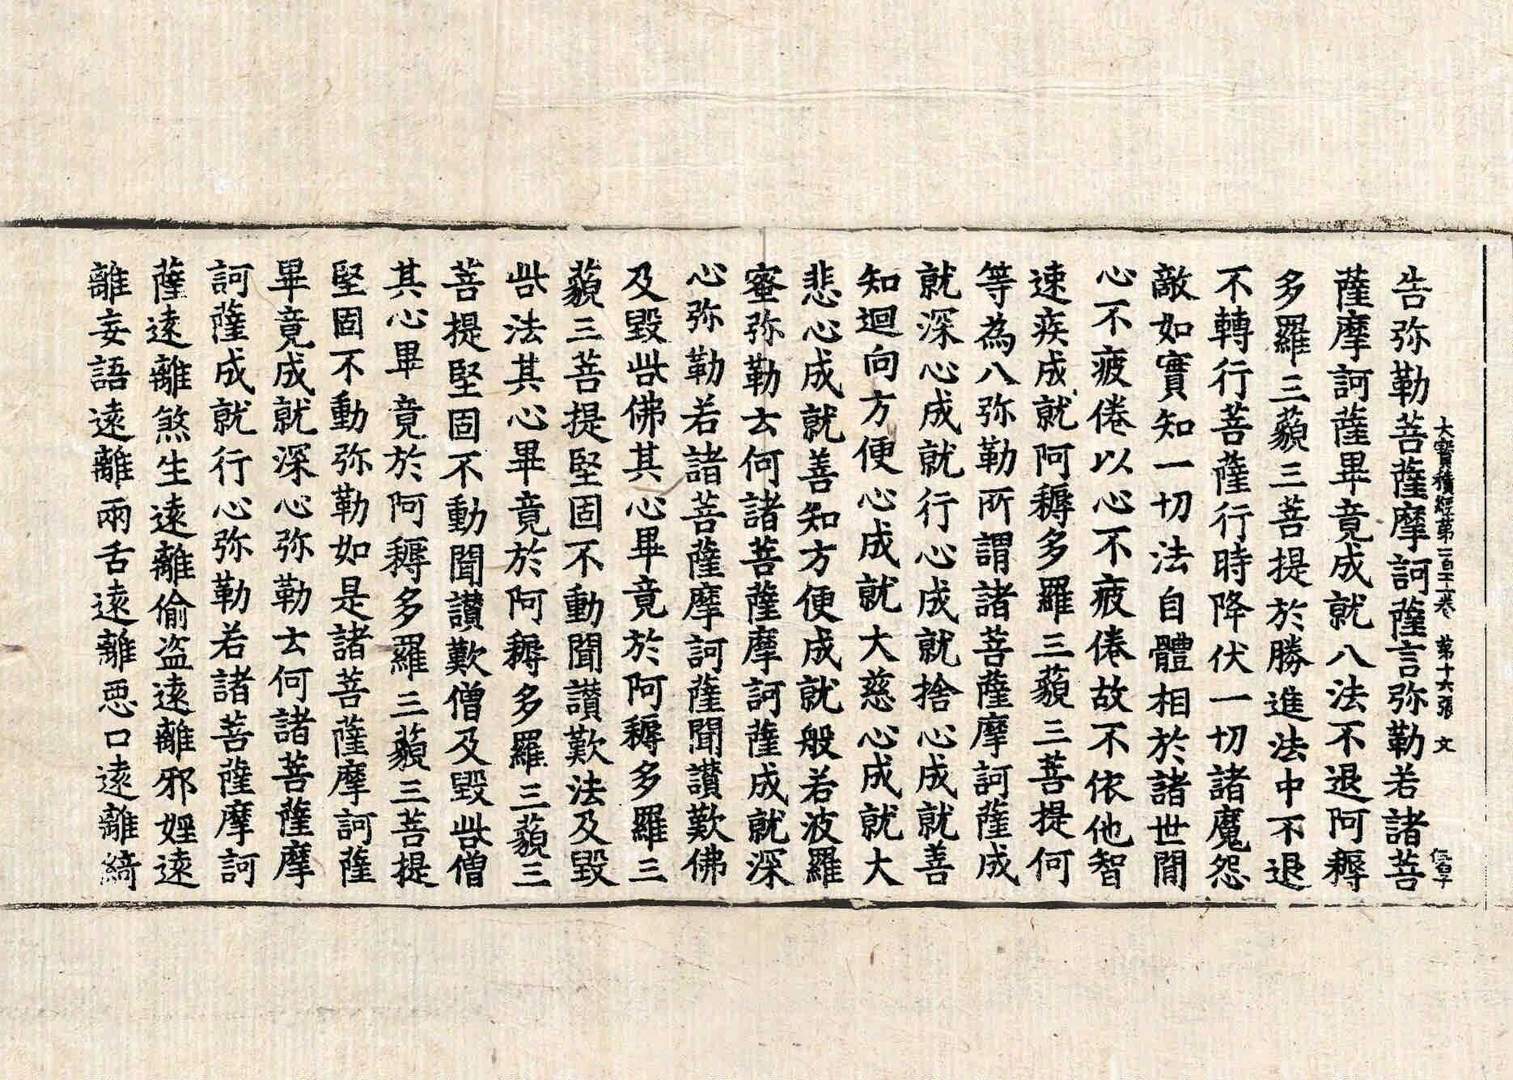 大寶積經第一百十一卷 第十六張 文
告弥勒菩薩摩訶薩言弥勒若諸菩
薩摩訶薩畢竟成就八法不退阿耨
多羅三藐三菩提於勝進法中不退
不轉行菩薩行時降伏一切諸魔怨
敵如實知一切法自體相於諸世間
心不疲倦以心不疲倦故不依他智
速疾成就阿耨多羅三藐三菩提何
等為八弥勒所謂諸菩薩摩訶薩成
就深心成就行心成就捨心成就善
知迴向方便心成就大慈心成就大
悲心成就善知方便成就般若波羅
蜜弥勒云何諸菩薩摩訶薩成就深
心弥勒若諸菩薩摩訶薩聞讚歎佛
及毀呰佛其心畢竟於阿耨多羅三
藐三菩提堅固不動聞讚歎法及毀
呰法其心畢竟於阿耨多羅三藐三
菩提堅固不動聞讚歎僧及毀呰僧
其心畢竟於阿耨多羅三藐三菩提
堅固不動弥勒如是諸菩薩摩訶薩
畢竟成就深心弥勒云何諸菩薩摩
訶薩成就行心弥勒若諸菩薩摩訶
薩遠離煞生遠離偷盜遠離邪婬遠
離妄語遠離兩舌遠離惡口遠離綺